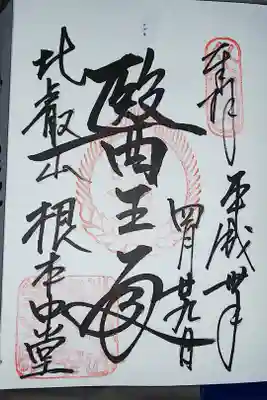 奉拝
平成卅年
四月廿九日
醫王殿
比叡山 根本中堂